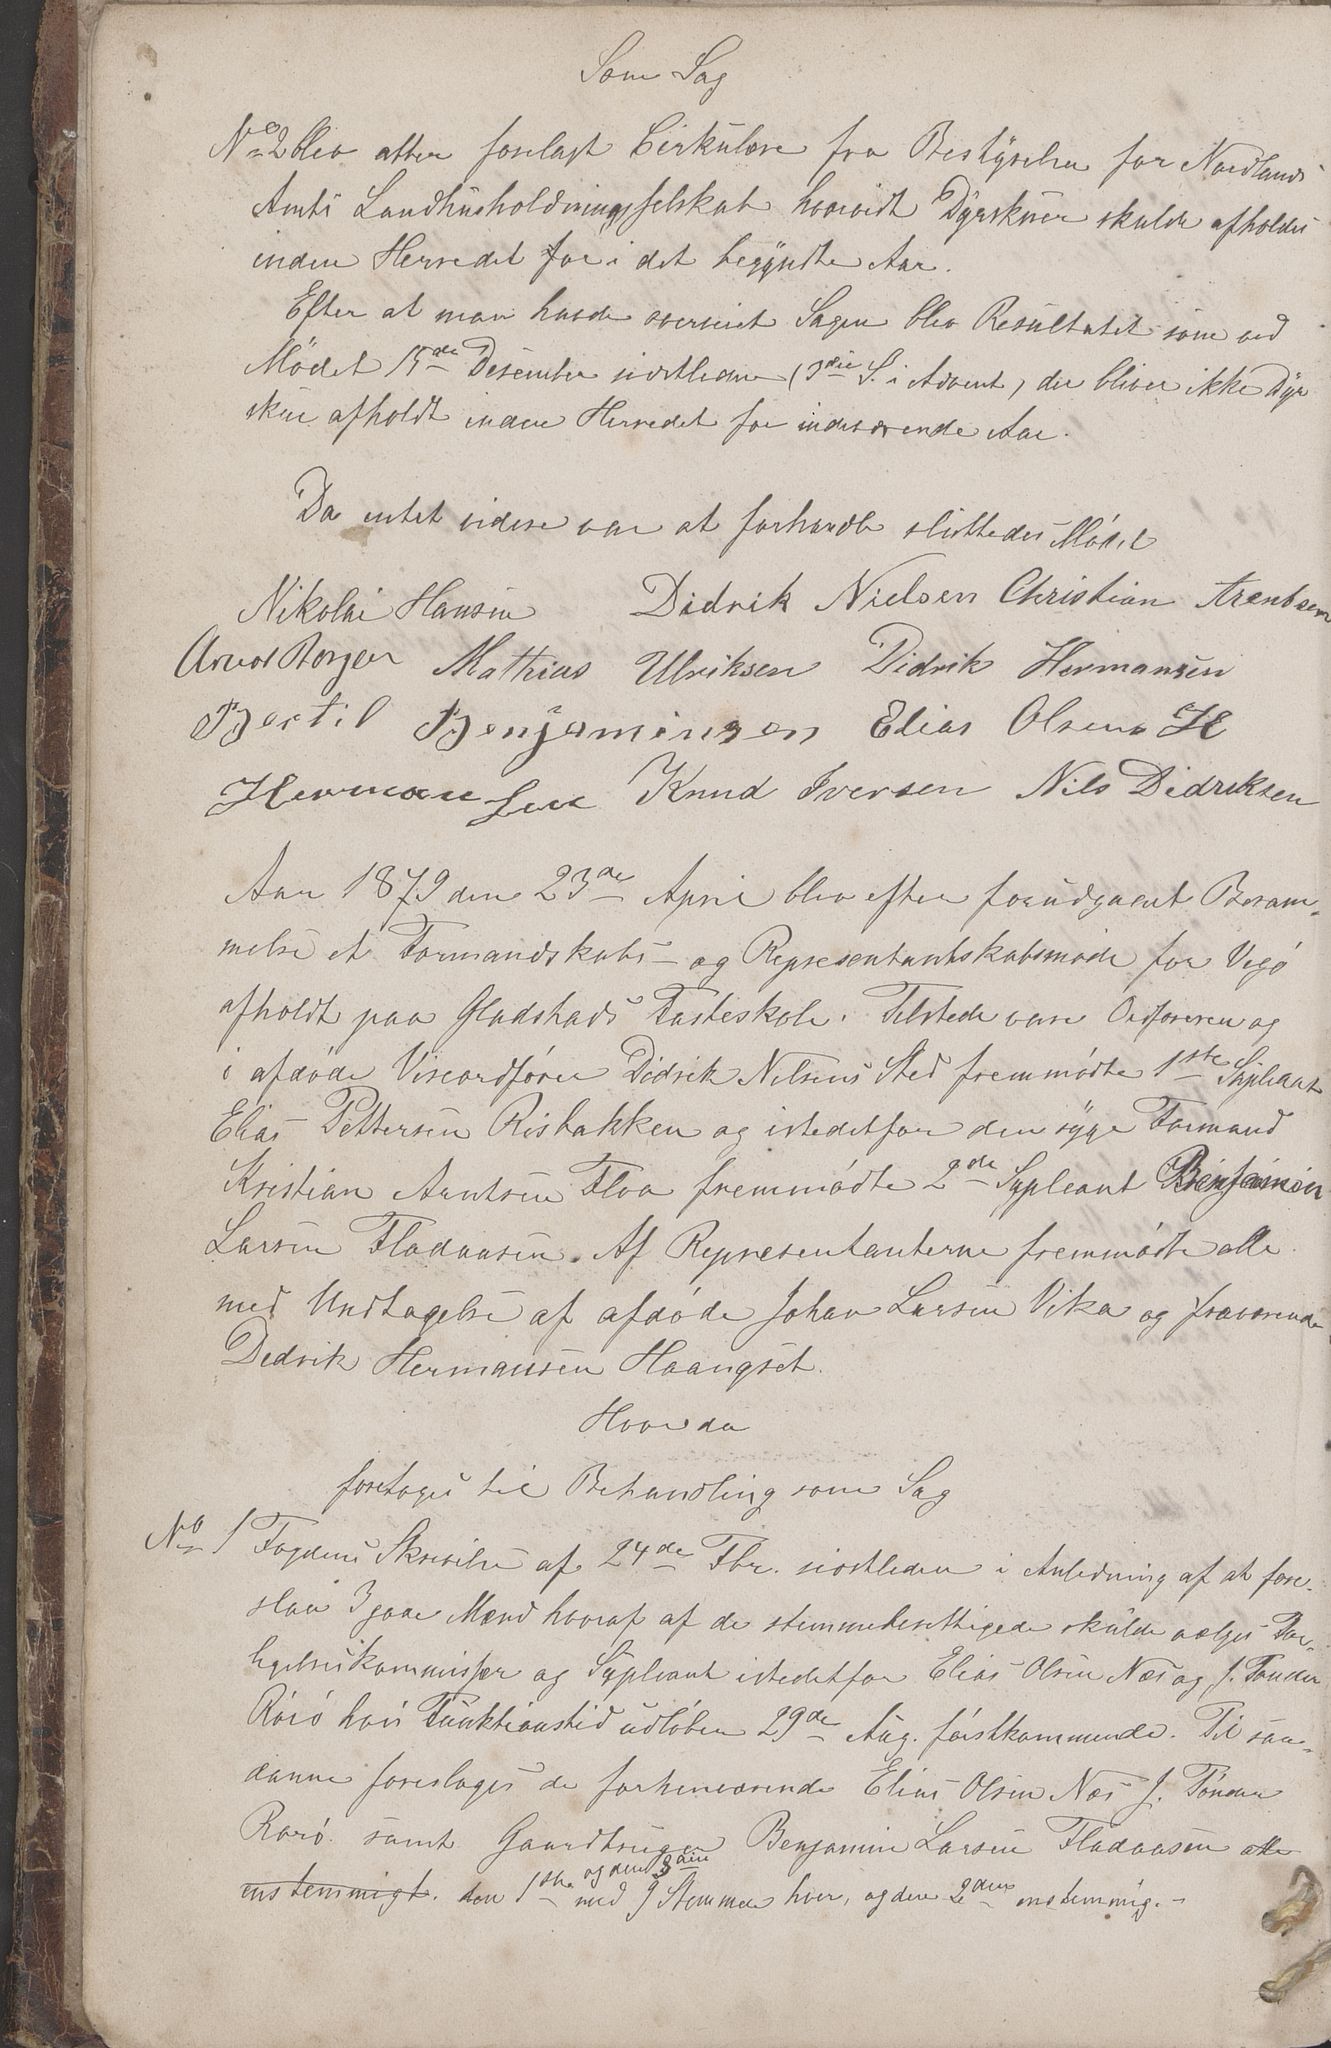 Som Sag
No 2 blev atter forelagt Cirkulære fra Bestyrelsen for Nordlands
Amts Landhusholdningsselskab hvorvidt Dyrskuer skulde afholdes
inden Herredet for i det begyndte Aar.
Efter at man havde overveiet Sagen blev Resultatet som ved
Mødet 15de Desember sidstleden (3die S. i Advent) der bliver ikke Dyr
skue afholdt inden Herredet for indeværende Aar.
Da intet videre var at forhandle sluttedes Mødet
Nikolai Hansen Didrik Nielsen Christian Arentsen
Arnol Borgen Mathias Ulriksen Didrik Hermansen
Bertil Benjaminsen Elias Olsen H
Hermansen Knud Iversen Nils Didriksen
Aar 1879 den 23de April blev efter forudgaaent Beram-
melse et Formandskabs- og Representantskabsmøde for Vegø
afholdt paa Gladstads Fasteskole. Tilstede vare Ordføreren og
i afdøde Viseordfører Didrik Nilsens Sted fremmødte 1ste Supleant
Elias Pettersen Risbakken og istedetfor den syge Formand
Kristian Arntsen Floa fremmødte 2de Supleant Benjamin
Larsen Fladaasen. Af Representanterne fremmødte alle
med Undtagelse af afdøde Johan Larsen Vika og fraværende
Dedrik Hermansen Haangset.
Hvor da
foretoges til Behandling som Sag
No 1 Fogdens Skrivelse af 24de Fbr. sidstleden i Anledning af at fore-
slaa 3 gode Mænd hvoraf af de stemmeberettigede skulde vælges For-
ligelseskommissær og Supleant istedetfor Elias Olsen Næs og J. Tønder
Rørø hvis Funktionstid udløber 29de Aug. førstkommende. Til saa-
danne foresloges de forhenværende Elias Olsen Næs J. Tønder
Rørø. samt Gaardbruger Benjamin Larsen Fladaasen alle
enstemmigt. den 1ste og den 3die med 9 Stemmer hver, og den 2den enstemmig.-